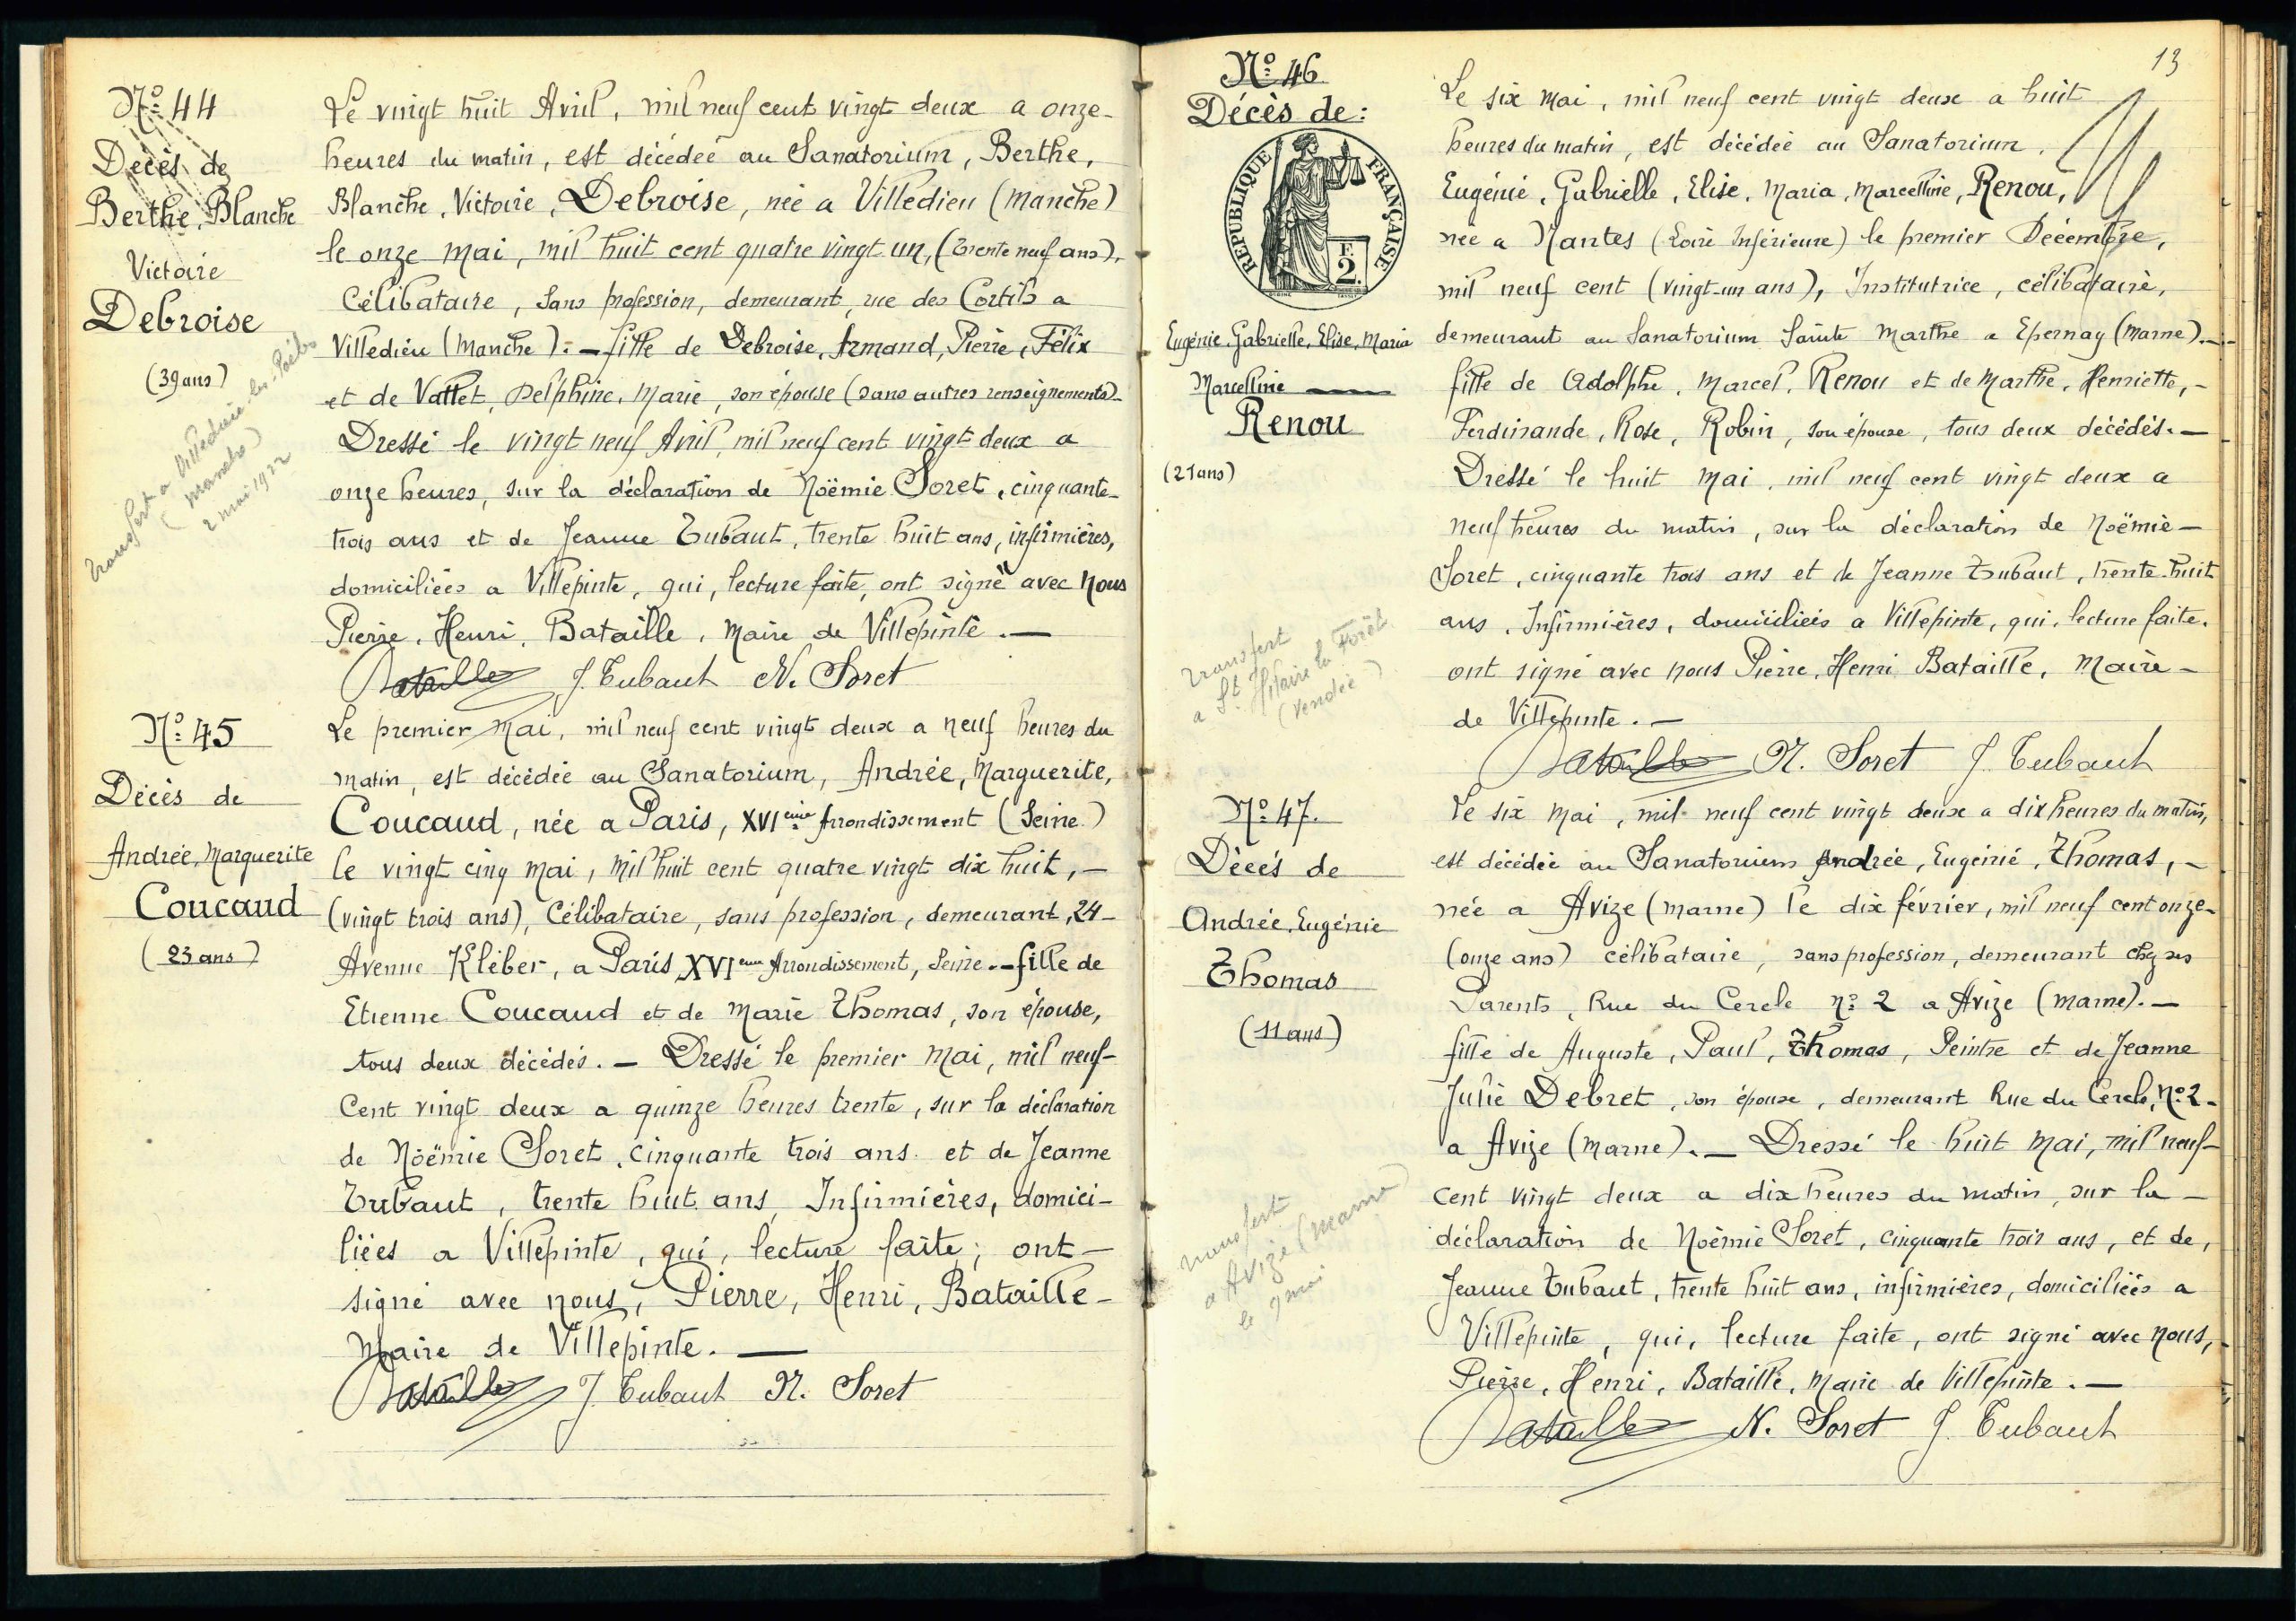 Nº 44
Décès de
Berthe, Blanche
Victoire
Debroise
(39 ans)
transfert a Villedieu les Poëles
(Manche)
2 mai 1922
Le vingt huit Avril, mil neuf cent vingt deux a onze-
heures du matin, est décédée au Sanatorium, Berthe,
Blanche, Victoire, Debroise, née a Villedieu (Manche)
le onze Mai, mil huit cent quatre vingt un, (Trente neuf ans),
Célibataire, Sans profession, demeurant, rue des Cortils a
Villedieu (Manche). — fille de Debroise, Armand, Pierre, Félix
et de Vattet, Delphine, Marie, son épouse (sans autres renseignements)-
Dressé le vingt neuf Avril, mil neuf cent vingt deux a
onze heures, sur la déclaration de Noëmie Soret, cinquante-
trois ans et de Jeanne Tubaut, trente huit ans, infirmières,
domiciliées a Villepinte, qui, lecture faite, ont signé avec Nous
Pierre, Henri, Bataille, Maire de Villepinte. —
Bataille J. Tubaut N. Soret
Nº 45
Décès de
Andrée, Marguerite
Coucaud
(23 ans)
Le premier Mai, mil neuf cent vingt deux a neuf heures du
matin, est décédée au Sanatorium, Andrée, Marguerite,
Coucaud, née a Paris, XVIème Arrondissement (Seine)
le vingt cinq Mai, Mil huit cent quatre vingt dix huit, —
(vingt trois ans), Célibataire, sans profession, demeurant, 24-
Avenue Kléber, a Paris XVIeme Arrondissement, Seine. — fille de
Etienne Coucaud et de Marie Thomas, son épouse,
tous deux décédés. — Dressé le premier Mai, mil neuf-
Cent vingt deux a quinze heures trente, sur la déclaration
de Noëmie Soret, cinquante trois ans et de Jeanne
Tubaut, trente huit ans, Infirmières, domici-
liées a Villepinte, qui, lecture faite, ont —
signé avec nous, Pierre, Henri, Bataille -
Maire de Villepinte. —
Bataille J. Tubaut N. Soret
13
Nº 46
Décès de:
RÉPUBLIQUE FRANÇAISE
F.
2.
Eugénie, Gabrielle, Elise, Maria
Marcelline —
Renou
(21 ans)
Transfert
a St Hilaire la Forêt
(Vendée)
Le six Mai, mil neuf cent vingt deux a huit
heures du matin, est décédée au Sanatorium,
Eugénie, Gabrielle, Elise, Maria, Marcelline, Renou,
née a Nantes (Loire Inférieure) le premier Décembre,
mil neuf cent (vingt-un ans), Institutrice, célibataire,
demeurant au Sanatorium Sainte Marthe a Epernay (Marne). —
fille de Adolphe, Marcel, Renou et de Marthe, Henriette, -
Ferdinande, Rose, Robin, son épouse, tous deux décédés. —
Dressé le huit Mai, mil neuf cent vingt deux a
neuf heures du matin, sur la déclaration de Noëmie —
Soret, cinquante trois ans et de Jeanne Tubaut, trente-huit
ans, Infirmières, domiciliées a Villepinte, qui, lecture faite,
ont signé avec nous Pierre, Henri Bataille, Maire —
de Villepinte. —
Bataille N. Soret J. Tubaut
Nº 47.
Décès de
Andrée, Eugénie
Thomas
(11 ans)
transfert
a Avize (Marne)
le 9 mai
Le six Mai, mil neuf cent vingt deux a dix heures du matin,
est décédée au Sanatorium Andrée, Eugénie, Thomas, —
née a Avize (Marne) le dix février, mil neuf cent onze-
(onze ans) célibataire, sans profession, demeurant chez ses
Parents, Rue du Cercle nº 2 a Avize (Marne). —
fille de Auguste, Paul, Thomas, Peintre et de Jeanne
Julie Debret, son épouse, demeurant Rue du Cercle, Nº 2 -
a Avize (Marne). — Dressé le huit Mai, mil neuf-
cent vingt deux a dix heures du matin, sur la —
déclaration de Noëmie Soret, cinquante trois ans, et de,
Jeanne Tubaut, trente huit ans, infirmières, domiciliées a
Villepinte, qui, lecture faite, ont signé avec nous,
Pierre, Henri, Bataille, Maire de Villepinte. —
Bataille N. Soret J. Tubaut